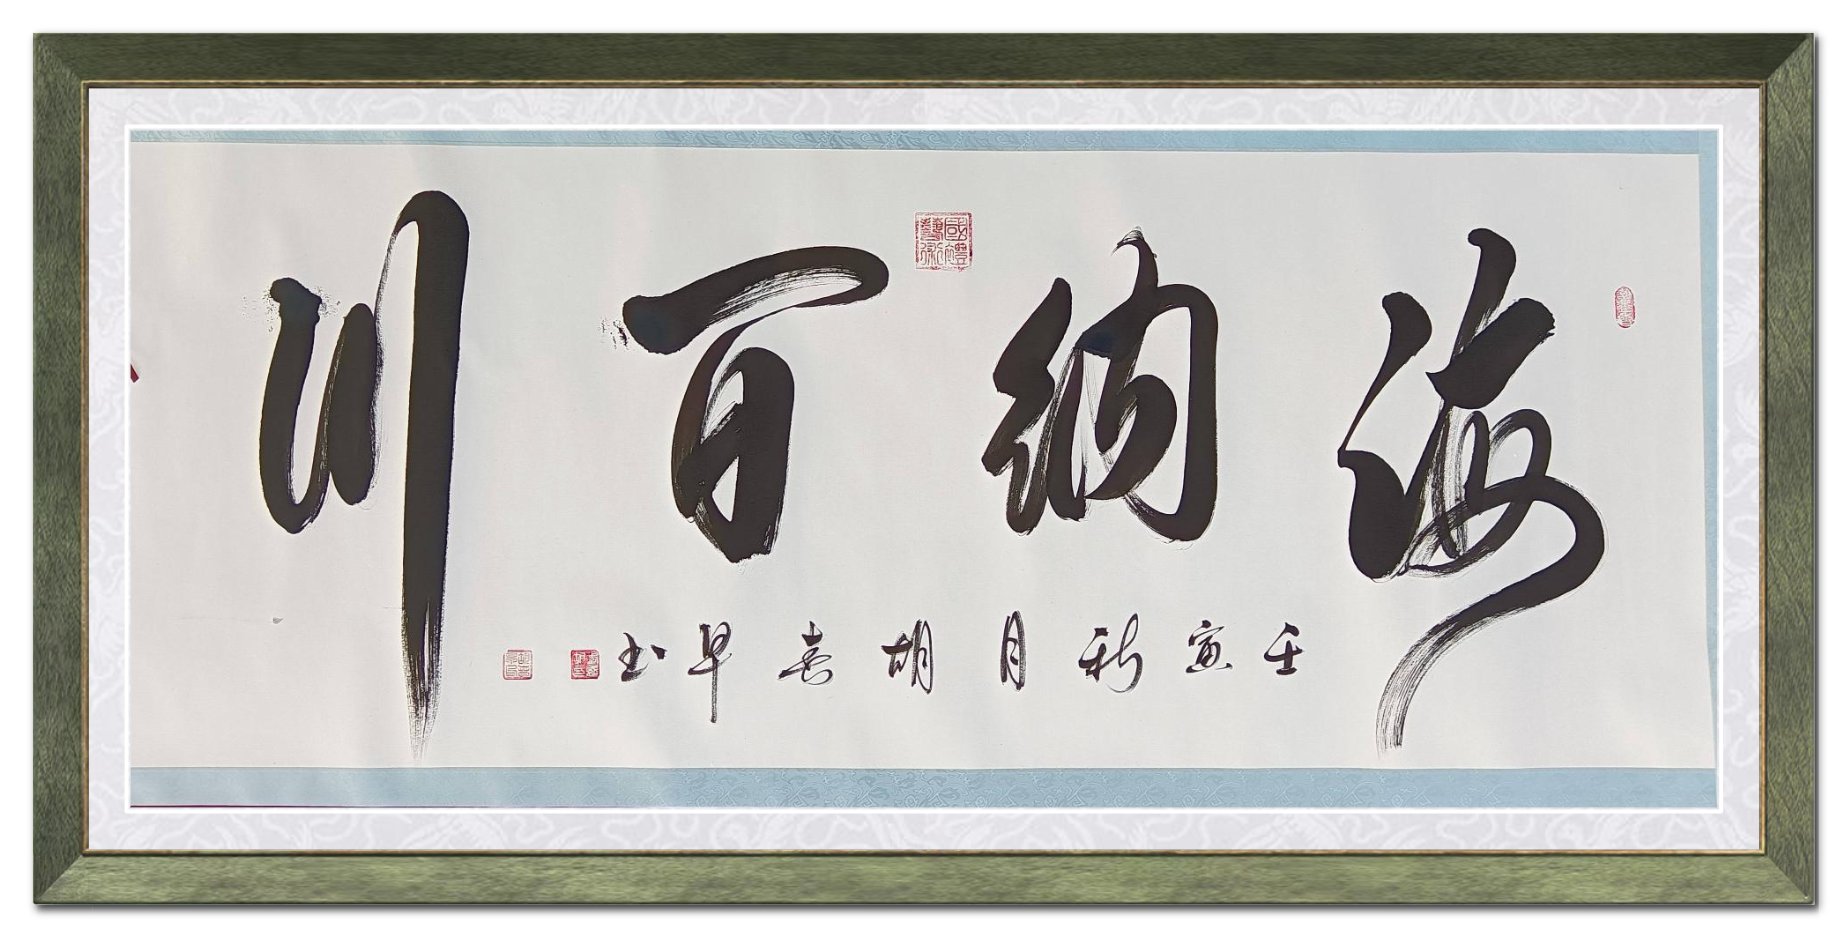 海纳百川
壬寅秋月胡春早书